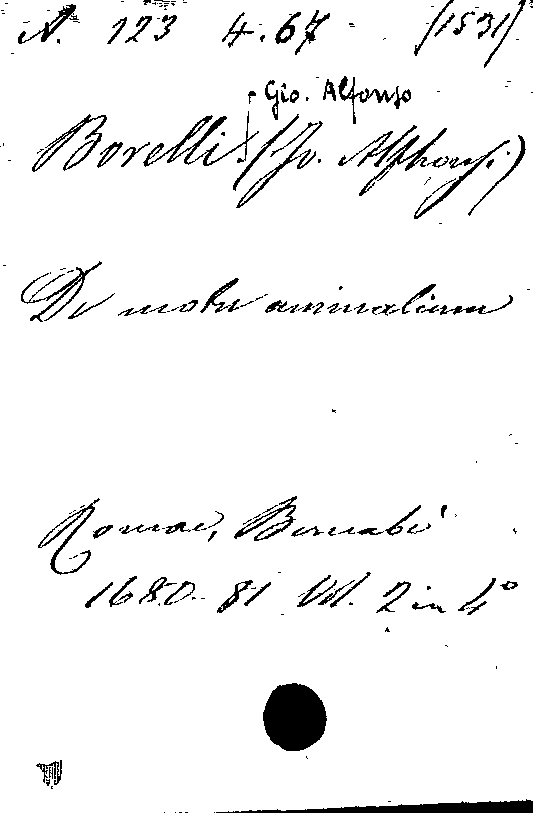 A. 123 4.67 (1531)
Gio. Alfonso
Borelli (Jo. Alphonsi)
De motu animalium
Romae, Bernabò
1680-81 Vol. 2 in 4°